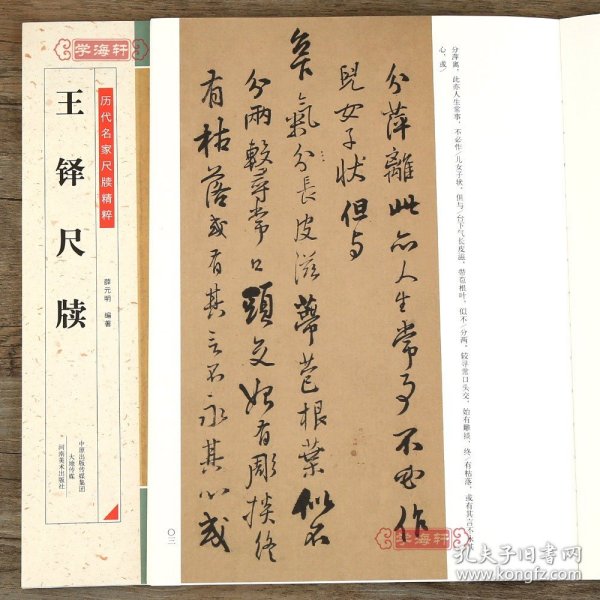 学海轩
历代名家尺牍精粹
王铎尺牍
薛元明 编著
中原出版传媒集团
大地传媒
河南美术出版社
分萍離此亦人生常事不必作
兒女子状但与
台下氣分長皮滋蒂苞根葉似不
分兩較尋常口頭交始有雕掞终
有枯落或有其言不永其心或
分萍离，此亦人生常事，不必作/儿女子状，但与/台下气长皮滋，蒂苞根叶，似不/分两，较寻常口头交，始有雕掞，终/有枯落，或有其言不永
心，或/
〇三
学海轩
孔夫子旧书网
www.kongfz.com